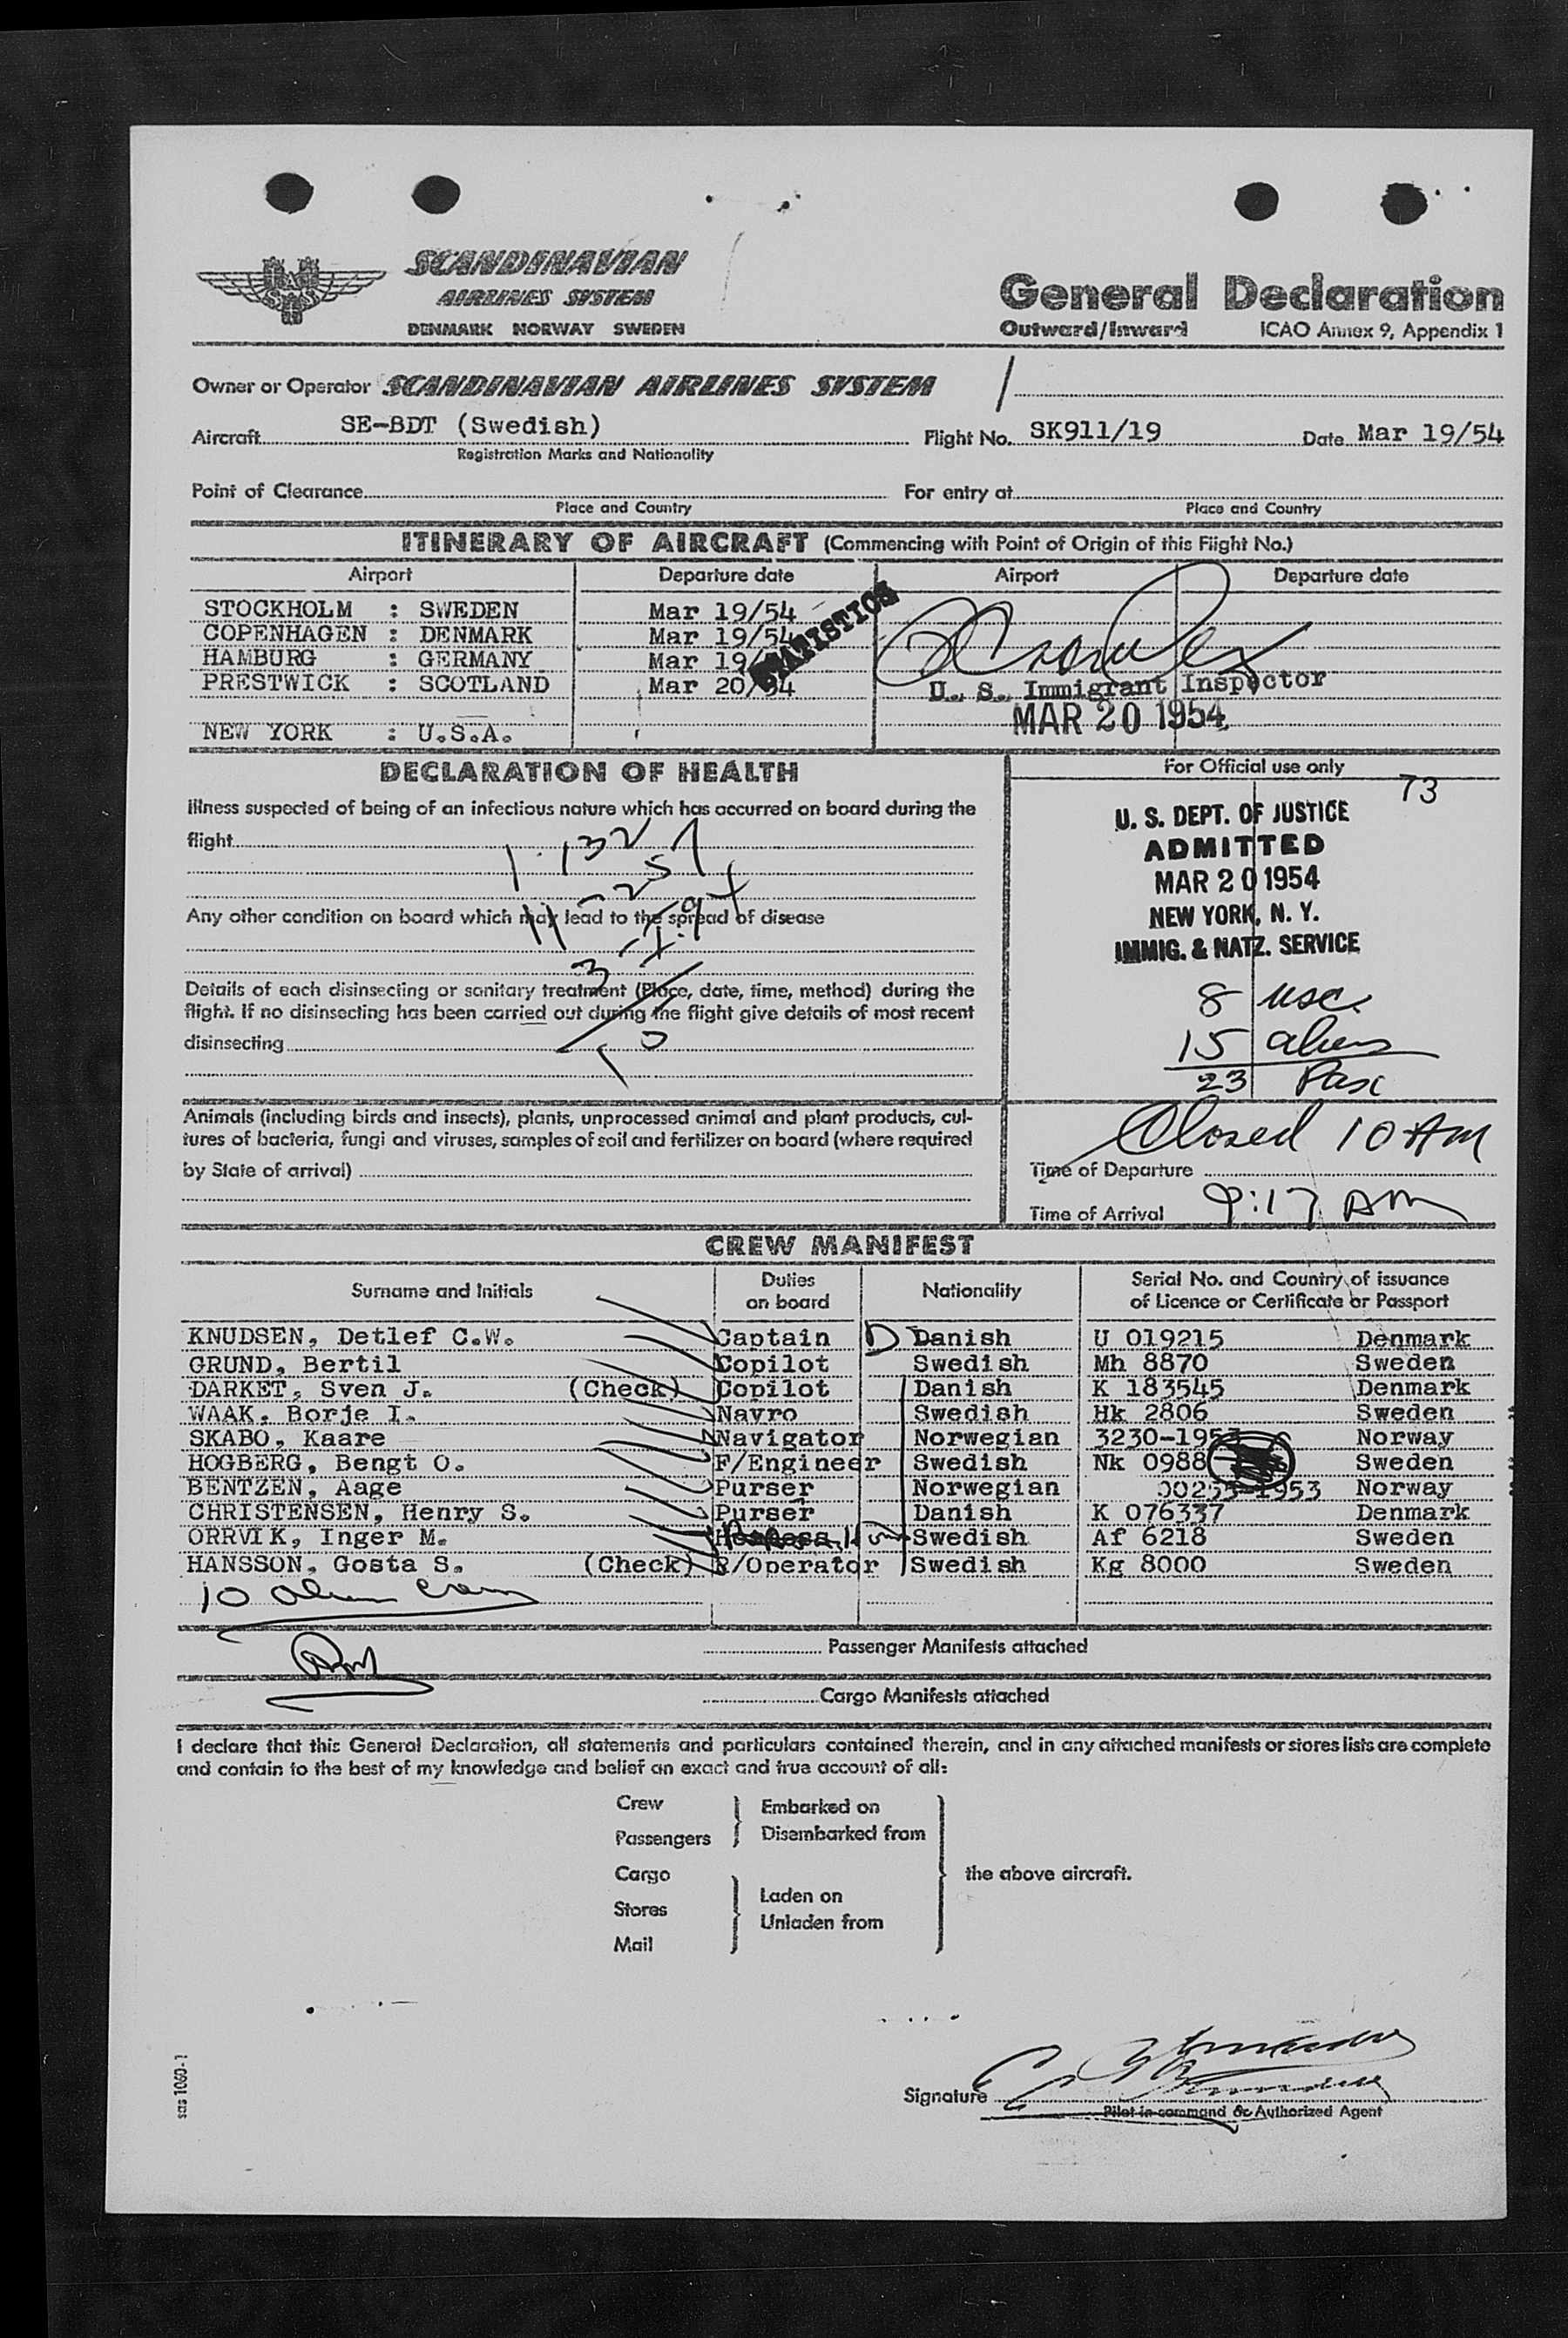 SCANDINAVIAN
AIRLINES SYSTEM
DENMARK NORWAY SWEDEN
General Declaration
Outward/Inward ICAO Annex 9, Appendix 1
Owner or Operator SCANDINAVIAN AIRLINES SYSTEM
Aircraft SE-BDT (Swedish) Flight No. SK911/19 Date Mar 19/54
Registration Marks and Nationality
Point of Clearance For entry at
Place and Country Place and Country
ITINERARY OF AIRCRAFT (Commencing with Point of Origin of this Flight No.)
Airport Departure date Airport Departure date
STOCKHOLM : SWEDEN Mar 19/54
COPENHAGEN : DENMARK Mar 19/54
HAMBURG : GERMANY Mar 19/
PRESTWICK : SCOTLAND Mar 20/54
STATISTICS
U. S. Immigrant Inspector
MAR 20 1954
NEW YORK : U.S.A.
DECLARATION OF HEALTH
For Official use only
73
Illness suspected of being of an infectious nature which has occurred on board during the
flight
Any other condition on board which may lead to the spread of disease
Details of each disinsecting or sanitary treatment (Place, date, time, method) during the
flight. If no disinsecting has been carried out during the flight give details of most recent
disinsecting
U. S. DEPT. OF JUSTICE
ADMITTED
MAR 20 1954
NEW YORK, N. Y.
IMMIG. & NATZ. SERVICE
8 usc
15 aliens
23 Pax
Animals (including birds and insects), plants, unprocessed animal and plant products, cul-
tures of bacteria, fungi and viruses, samples of soil and fertilizer on board (where required
by State of arrival)
Closed 10 AM
Time of Departure
Time of Arrival 9:17 AM
CREW MANIFEST
Surname and Initials Duties on board Nationality Serial No. and Country of issuance of Licence or Certificate or Passport
KNUDSEN, Detlef C.W. Captain D Danish U 019215 Denmark
GRUND, Bertil Copilot Swedish Mh 8870 Sweden
DARKET, Sven J. (Check) Copilot Danish K 183545 Denmark
WAAK, Borje I. Navro Swedish Hk 2806 Sweden
SKABO, Kaare Navigator Norwegian 3230-1953 Norway
HOGBERG, Bengt O. F/Engineer Swedish Nk 0988 Sweden
BENTZEN, Aage Purser Norwegian 00255-1953 Norway
CHRISTENSEN, Henry S. Purser Danish K 076337 Denmark
ORRVIK, Inger M. Swedish Af 6218 Sweden
HANSSON, Gosta S. (Check) R/Operator Swedish Kg 8000 Sweden
10 alien crew
Passenger Manifests attached
Cargo Manifests attached
I declare that this General Declaration, all statements and particulars contained therein, and in any attached manifests or stores lists are complete
and contain to the best of my knowledge and belief an exact and true account of all:
Crew
Passengers
Embarked on
Disembarked from
Cargo
Stores
Mail
Laden on
Unladen from
the above aircraft.
Signature
Pilot in command or Authorized Agent
sas 1060-1